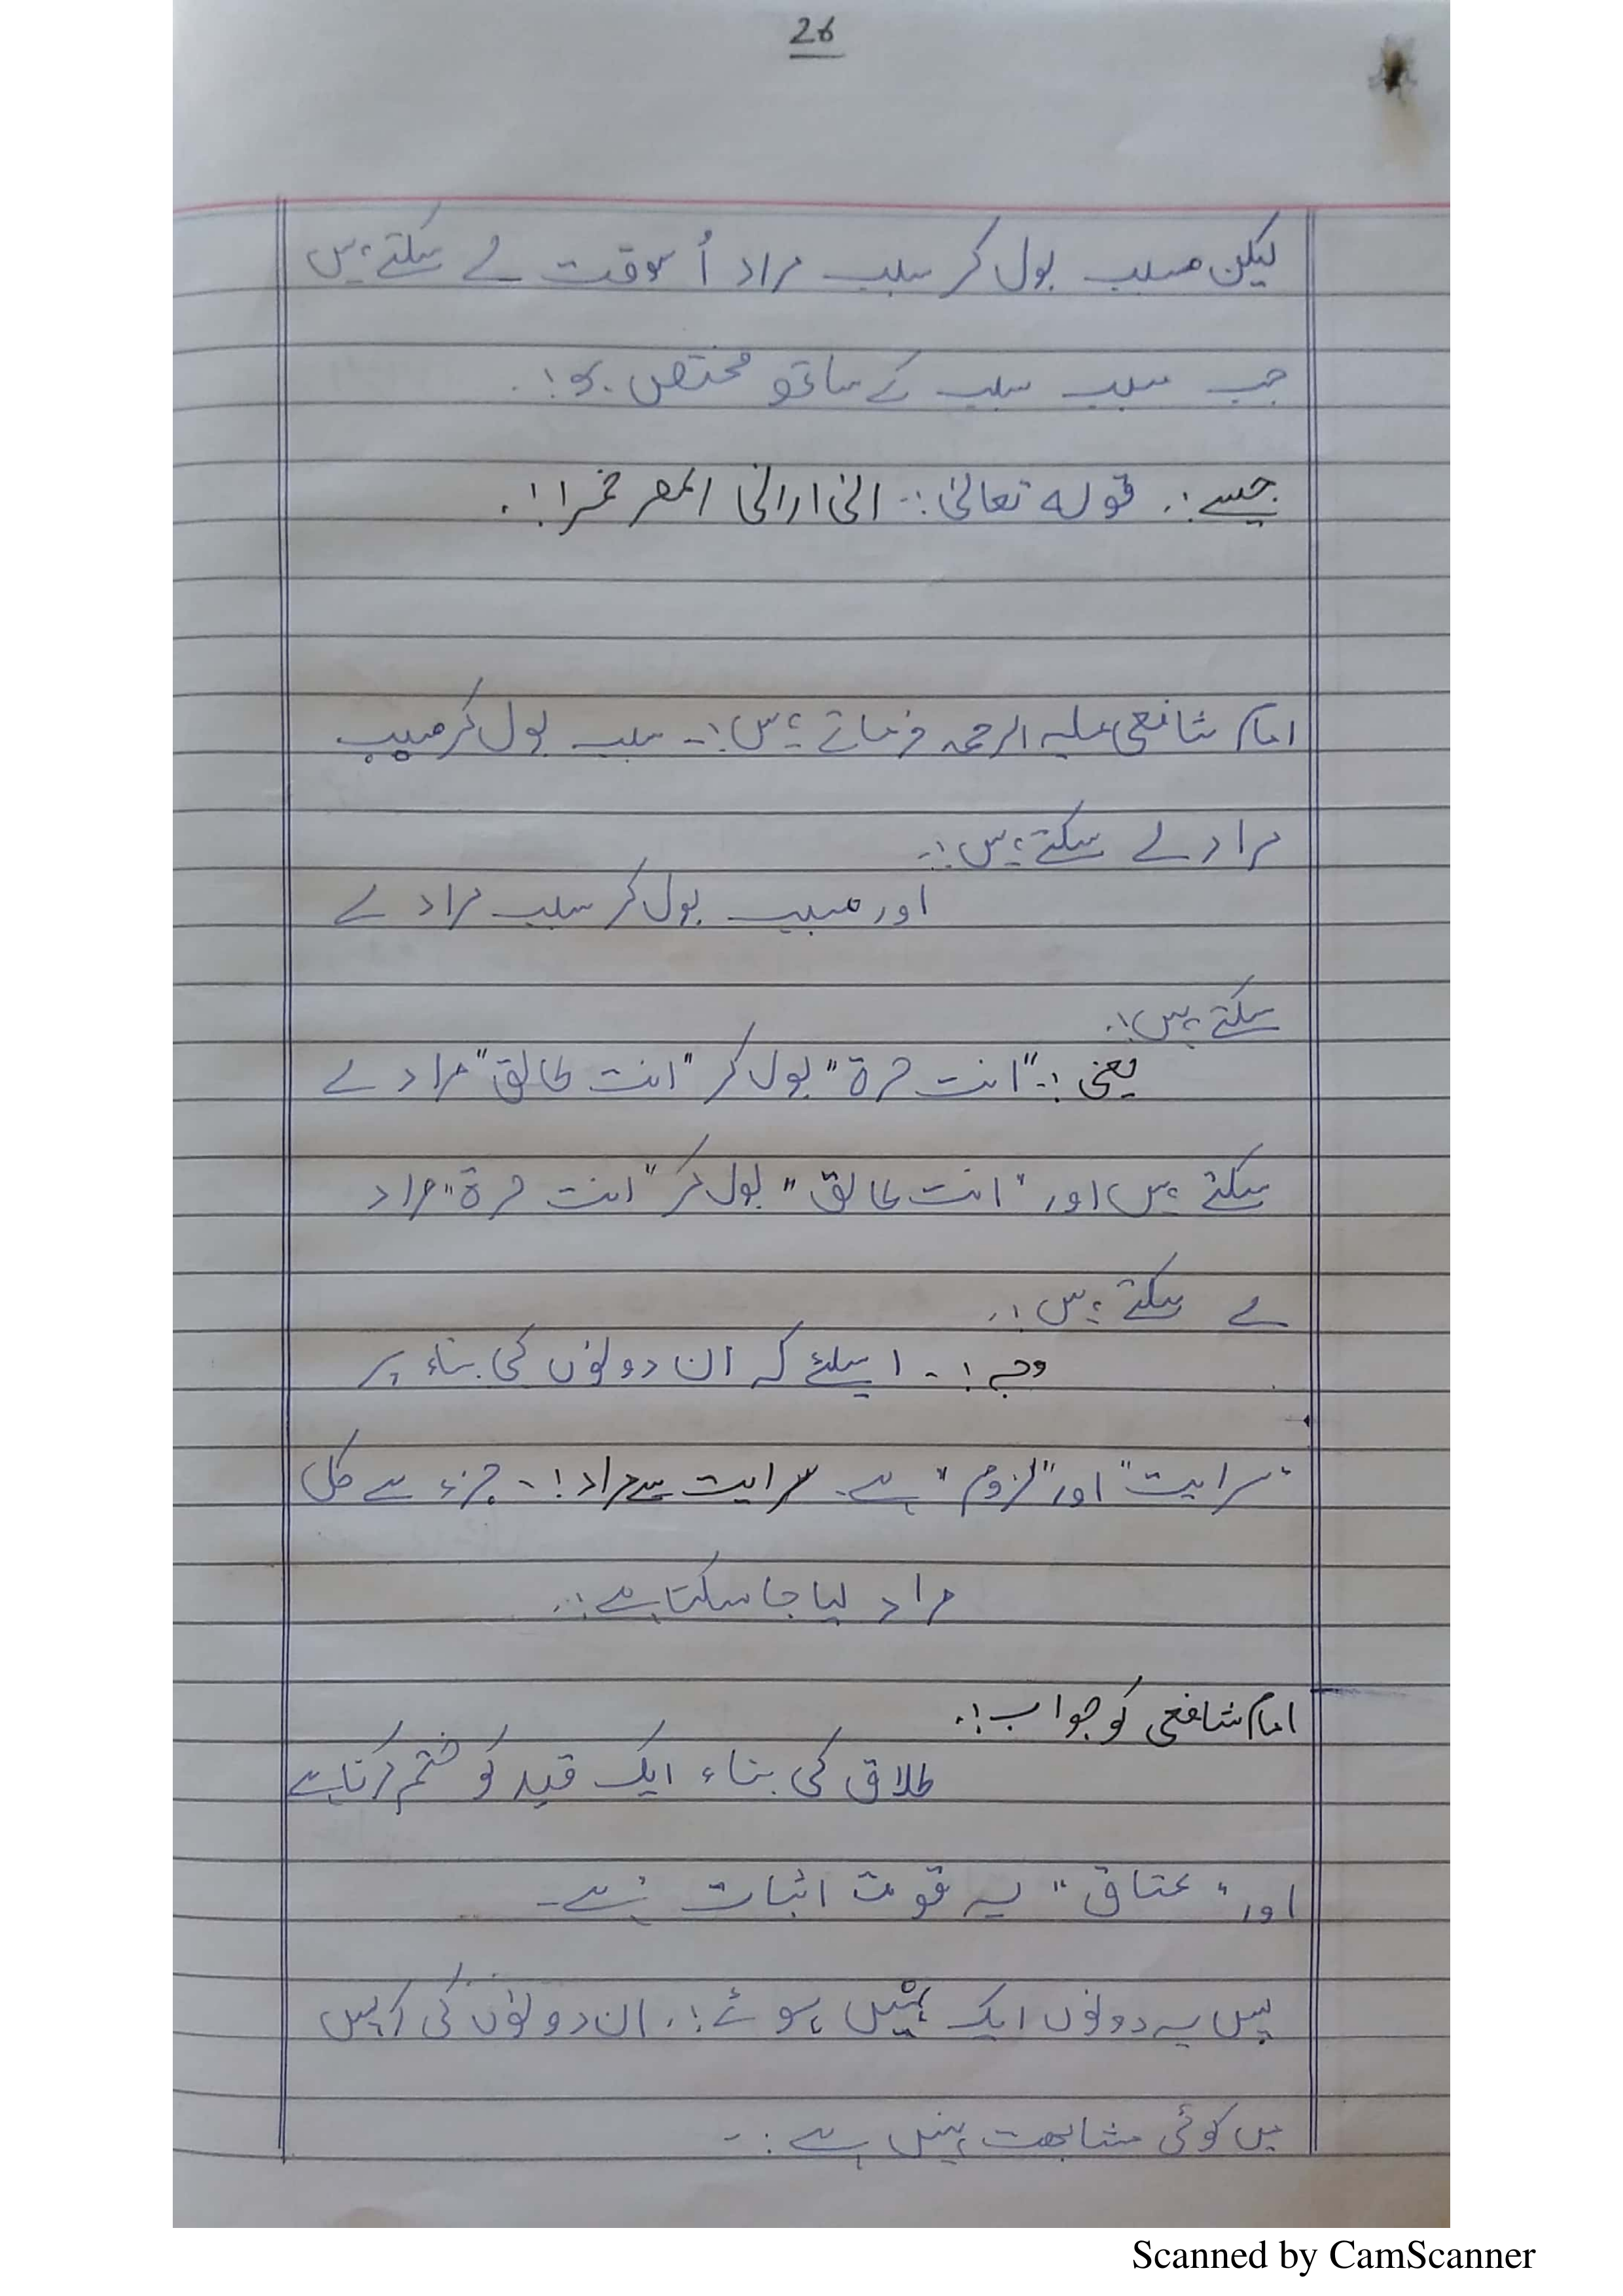 26
لیکن مسبب بول کر سبب مراد اُسوقت لے سکتے ہیں
جب مسبب سبب کے ساتھ مختص ہو!۔
جیسے:۔ قولہ تعالیٰ:۔ انی ارانی اعصر خمرا!۔
امام شافعی علیہ الرحمہ فرماتے ہیں!۔ سبب بول کر مسبب
مراد لے سکتے ہیں:۔
اور مسبب بول کر سبب مراد لے
سکتے ہیں!۔
یعنی:۔ "انت حرۃ" بول کر "انت طالق" مراد لے
سکتے ہیں اور "انت طالق" بول کر "انت حرۃ" مراد
لے سکتے ہیں!۔
وجہ!۔ اسلئے کہ ان دونوں کی بناء پر
"سرایت" اور "لزوم" ہے۔ سرایت سے مراد!۔ جزء سے کل
مراد لیا جا سکتا ہے:۔
امام شافعی کو جواب!۔
طلاق کی بناء ایک قید کو ختم کرنا ہے
اور "عتاق" یہ قوت اثبات ہے۔
پس یہ دونوں ایک نہیں ہوئے!۔ ان دونوں کی آپس
میں کوئی مشابھت نہیں ہے:۔
Scanned by CamScanner